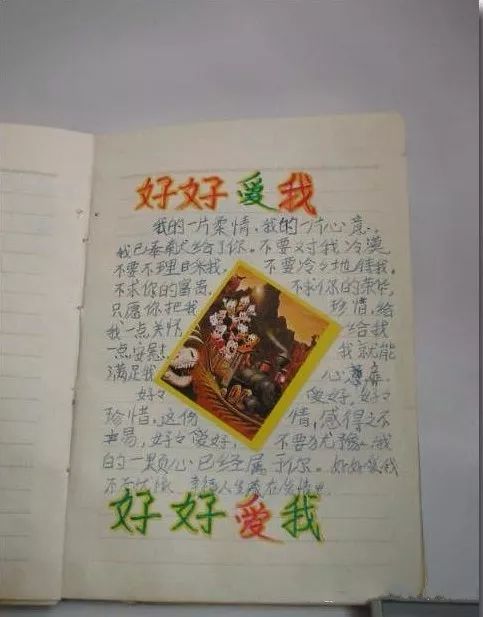 好好爱我
我的一片柔情,我的一片心意,
我已奉献给了你。不要对我冷漠
不要不理日采我, 不要冷々地待我,
不求你的富贵, 不求你的荣华,
只愿你把我 珍惜,给
我一点关怀 给我
一点安慰 我就能
满足我 心意
好々 爱好,好々
珍惜,这份 情,感得之不
易,好々爱好, 不要犹豫,我
的一颗心已经属于你。好好爱我
好好爱我